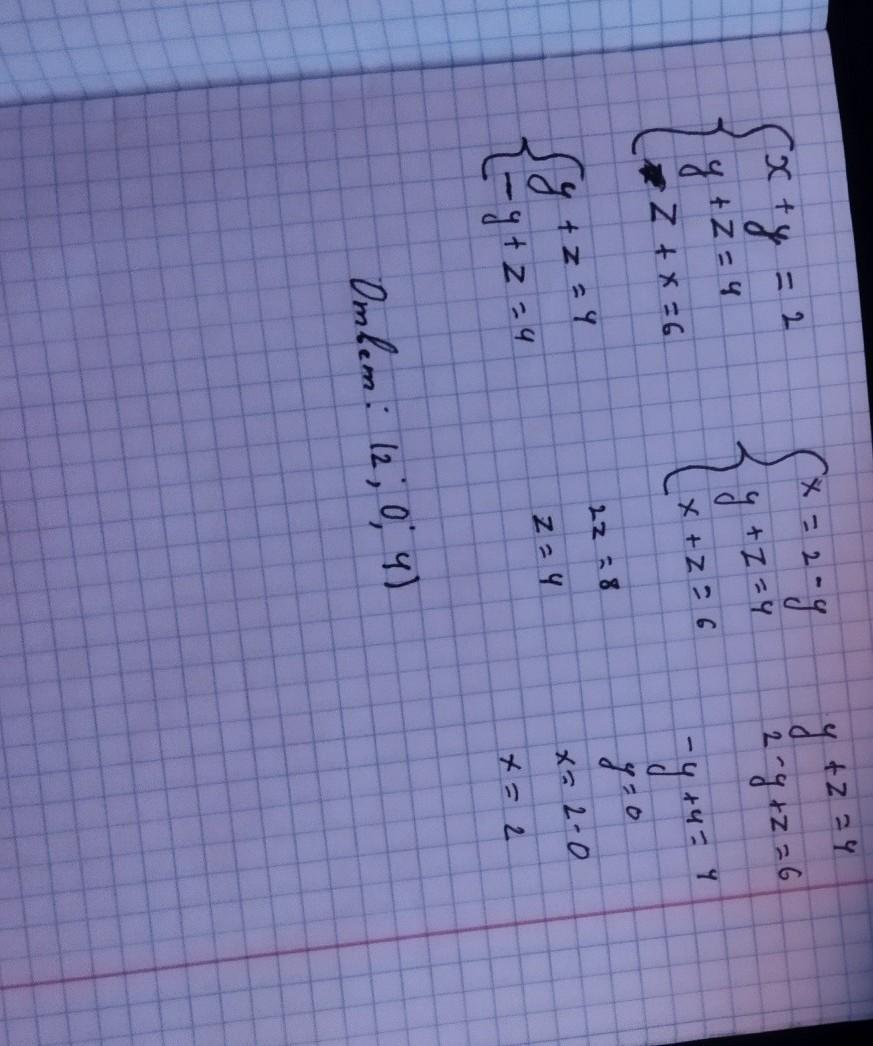 x + y = 2
y + z = 4
z + x = 6
x = 2 - y
y + z = 4
x + z = 6
y + z = 4
2 - y + z = 6
y + z = 4
-y + z = 4
2z = 8
z = 4
-y + 4 = 4
y = 0
x = 2 - 0
x = 2
Ответ: (2; 0; 4)